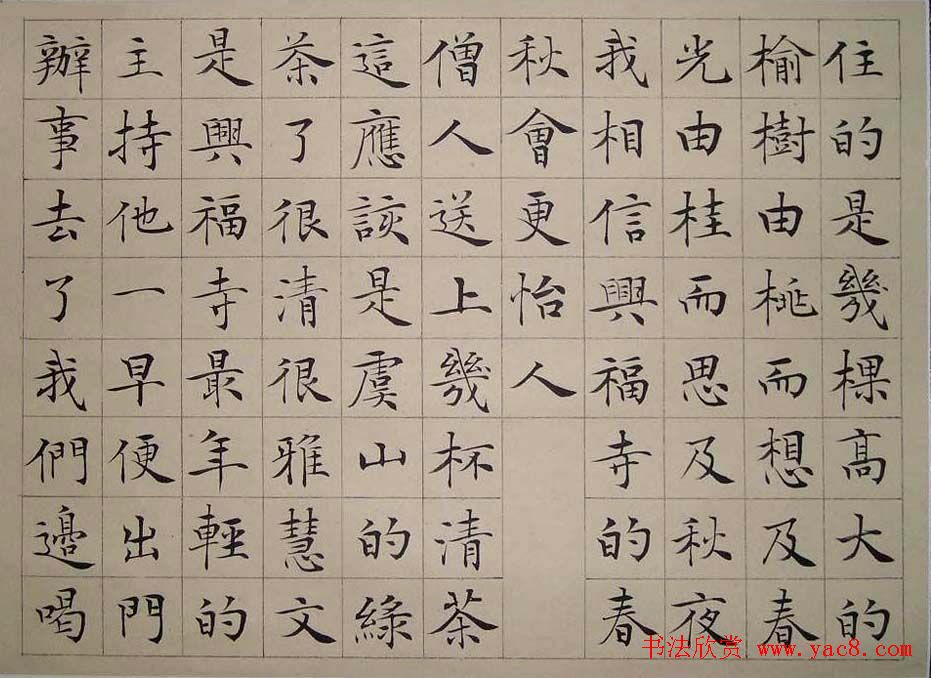 住的是幾棵高大的
榆樹由桃而想及春
光由桂而思及秋夜
我相信興福寺的春
秋會更怡人
僧人送上幾杯清茶
這應該是虞山的綠
茶了很清很雅慧文
是興福寺最年輕的
主持他一早便出門
辦事去了我們邊喝
书法欣赏 www.yac8.com